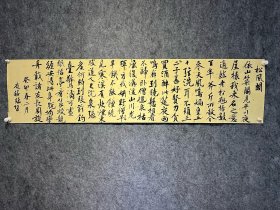 松風閣
依山築閣見平川夜
闌箕斗插
屋椽我來名之意
適然老松魁梧數
百年斧斤所赦今
參天風鳴媧皇五
十弦洗耳不須菩
二三子甚好賢力貧
買酒醉此筵夜雨
鳴廊到曉懸相看
不歸臥僧氈泉枯
石燥復潺湲山川光
輝為我妍野僧旱
饑不能饘曉
見寒溪有炊煙東
坡道人已沉泉張
侯何時到眼前釣
臺驚濤可晝眠
怡亭看篆蛟龍纏
安得此身脫拘攣
舟載諸友長周旋
癸卯春二月